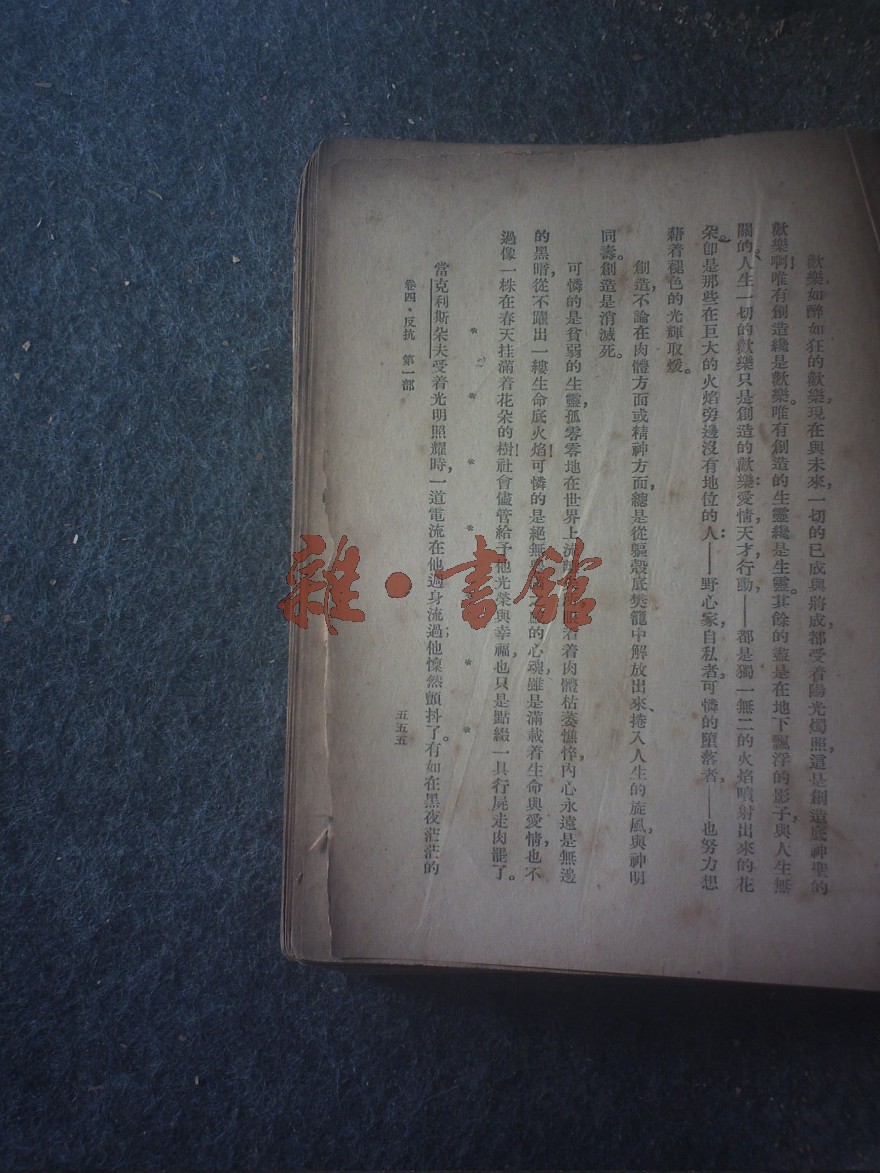 歡樂，如醉如狂的歡樂，現在與未來，一切的已成與將成，都受着陽光燭照，這是創造底神聖的
歡樂啊！唯有創造纔是歡樂。唯有創造的生靈纔是生靈。其餘的盡是在地下飄浮的影子，與人生無
關的。人生一切的歡樂只是創造的歡樂：愛情，天才，行動，——都是獨一無二的火焰噴射出來的花
朵。即是那些在巨大的火焰旁邊沒有地位的人：——野心家，自私者，可憐的墮落者，——也努力想
藉着褪色的光輝取煖。
創造，不論在肉體方面或精神方面，總是從軀殼底樊籠中解放出來，捲入人生的旋風，與神明
同壽。創造是消滅死。
可憐的是貧弱的生靈，孤零零地在世界上流着肉體枯萎憔悴，內心永遠是無邊
的黑暗，從不躍出一縷生命底火焰！可憐的是絕無的心魂，雖是滿載着生命與愛情，也不
過像一株在春天挂滿着花朵的樹！社會儘管給予他光榮與幸福，也只是點綴一具行屍走肉罷了。
* * * * * * *
當克利斯朵夫受着光明照耀時，一道電流在他週身流過；他慄然顫抖了。有如在黑夜茫茫的
卷四·反抗 第一部 五五五
雜·書館